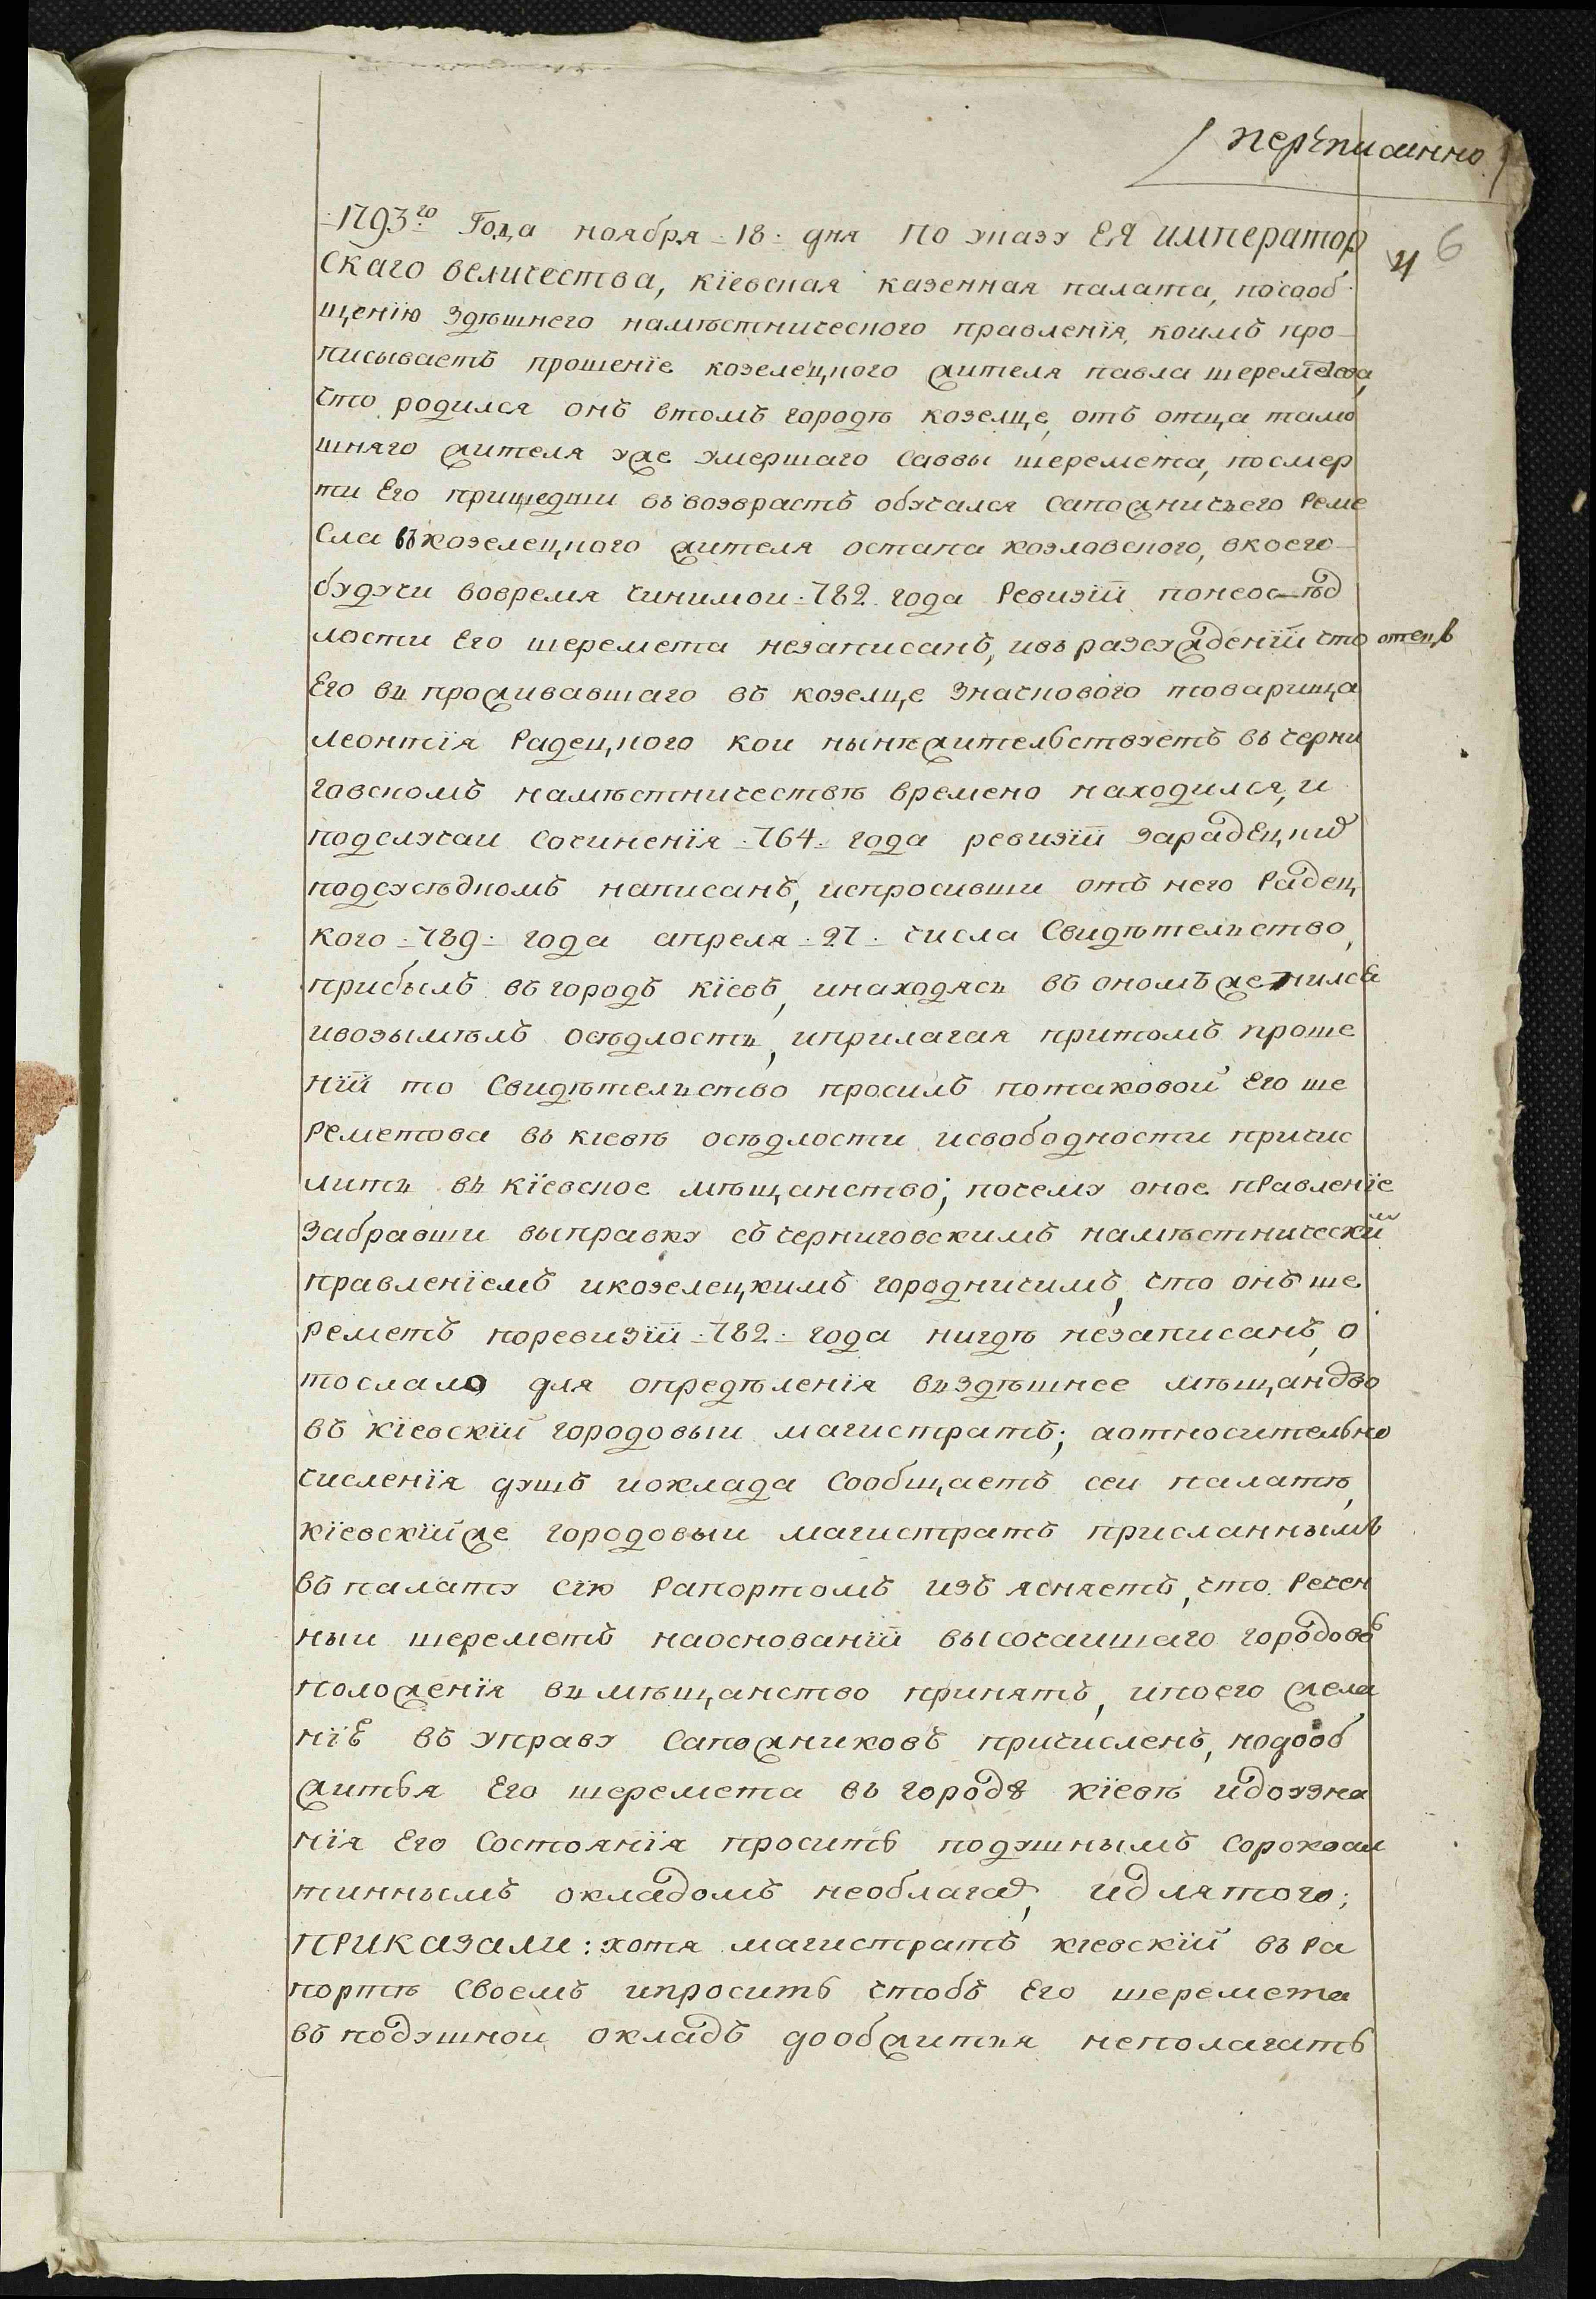 перепи санно
6
4
1793го Года ноября 18 дня по указу ЕЯ император
Скаго величества, кїевская казенная палата, посооб
щенїю здѣшнего намѣстнического правленїя, коимъ про
писываетъ прошенїе козелецкого жителя павла шереметова,
что родился онъ втомъ городѣ козелце, отъ отца тамо
шняго жителя уже умершаго Саввы шеремета, посмер
ти Его пришедши въвозврастъ обучался Сапожничьего Реме
Сла въкозелецкого жителя остапа козловского, вкоего
будучи вовремя чинимои 782 года Ревизїй понеосѣд
лости Его шеремета незаписанъ, изъ разсужденїй что отецъ
Его въ проживавшаго въ козелце Значкового товарища
леонтїя Радецкого кои нынѣжительствуетъ въ черни
говскомъ намѣстничествѣ времено находился, и
подслучаи Сочиненїя 764 года ревизїй зарадЕцким
подсусѣдкомъ написанъ, испросивши отъ него Радец
кого 789 года апреля 27 числа Свидѣтельство,
прибылъ въ городъ кїевъ, инаходясь въ ономъ женился
ивозымѣлъ осѣдлость, иприлагая притомъ проше
нїй то Свидѣтельство просилъ потаковой Его ше
Реметова въ кїевѣ осѣдлости исвободности причис
лить въ кїевское мѣщанство; почему оное пРавленїе
Забравши выправку съ черниговскимъ намѣстническим
правленїемъ икозелецкимъ городничимъ, что онъ ше
Реметъ поревизїй 782 года нигдѣ незаписанъ, о
тослало для опредѣленїя въздѣшнее мѣщанство
въ кїевскїй городовыи магистратъ; аотносительно
численїя душъ иоклада Сообщаетъ сеи палатѣ,
кїевскїйже городовыи магистратъ присланнымъ
въ палату сїю Рапортомъ изъясняетъ, что Речен
ныи шереметъ наоснованїй высочаишаго городовъ
положенїя въ мѣщанство принятъ, ипоего жела
нїЕ въ управу Сапожниковъ причисленъ, нодооб
житья Его шеремета въ городѣ кїевѣ идоузна
нїя Его Состоянїя проситъ подушнымъ Сорокоал
тиннымъ окладомъ необлагат, идлятого;
приказали: хотя магистратъ кїевскїй въ Ра
портѣ Своемъ ипроситъ чтобъ Его шеремета
въ подушнои окладъ дообжитья неполагать